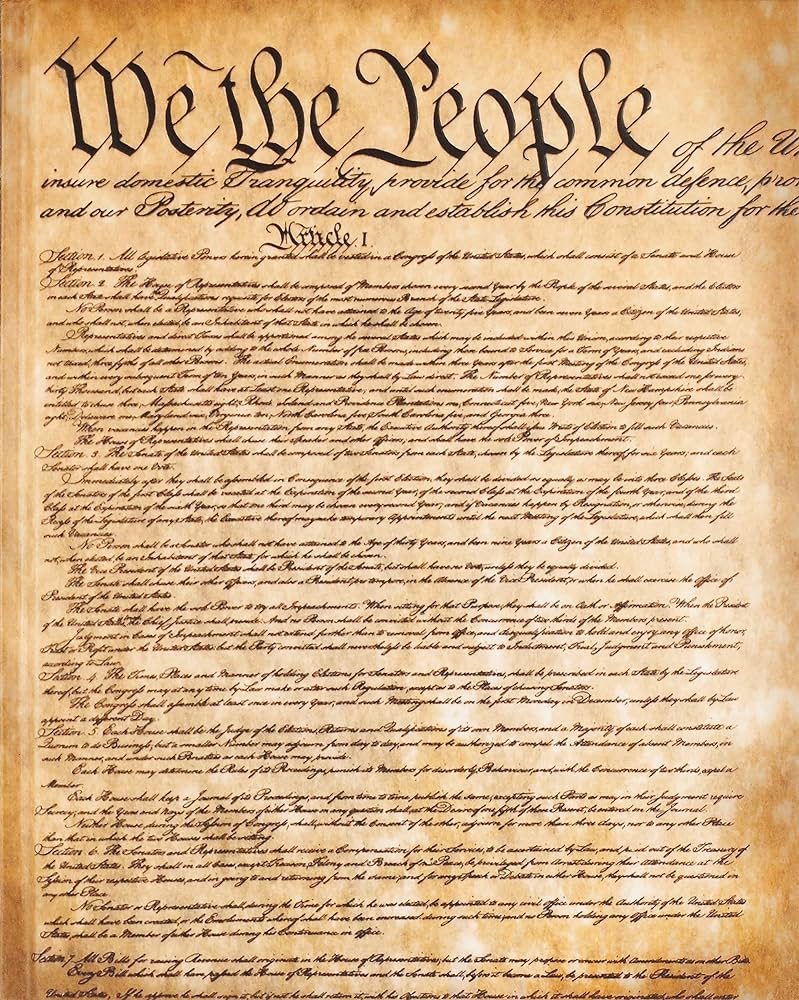 We the People of the U
insure domestic Tranquility, provide for the common defence, pro
and our Posterity, do ordain and establish this Constitution for the
Article. I.
Section. 1. All legislative Powers herein granted shall be vested in a Congress of the United States, which shall consist of a Senate and House
of Representatives.
Section. 2. The House of Representatives shall be composed of Members chosen every second Year by the People of the several States, and the Electors
in each State shall have the Qualifications requisite for Electors of the most numerous Branch of the State Legislature.
No Person shall be a Representative who shall not have attained to the Age of twenty five Years, and been seven Years a Citizen of the United States,
and who shall not, when elected, be an Inhabitant of that State in which he shall be chosen.
Representatives and direct Taxes shall be apportioned among the several States which may be included within this Union, according to their respective
Numbers, which shall be determined by adding to the whole Number of free Persons, including those bound to Service for a Term of Years, and excluding Indians
not taxed, three fifths of all other Persons. The actual Enumeration shall be made within three Years after the first Meeting of the Congress of the United States,
and within every subsequent Term of ten Years, in such Manner as they shall by Law direct. The Number of Representatives shall not exceed one for every
thirty Thousand, but each State shall have at Least one Representative; and until such enumeration shall be made, the State of New Hampshire shall be
entitled to chuse three, Massachusetts eight, Rhode Island and Providence Plantations one, Connecticut five, New York six, New Jersey four, Pennsylvania
eight, Delaware one, Maryland six, Virginia ten, North Carolina five, South Carolina five, and Georgia three.
When vacancies happen in the Representation from any State, the Executive Authority thereof shall issue Writs of Election to fill such Vacancies.
The House of Representatives shall chuse their Speaker and other Officers; and shall have the sole Power of Impeachment.
Section. 3. The Senate of the United States shall be composed of two Senators from each State, chosen by the Legislature thereof, for six Years; and each
Senator shall have one Vote.
Immediately after they shall be assembled in Consequence of the first Election, they shall be divided as equally as may be into three Classes. The Seats
of the Senators of the first Class shall be vacated at the Expiration of the second Year, of the second Class at the Expiration of the fourth Year, and of the third
Class at the Expiration of the sixth Year, so that one third may be chosen every second Year; and if Vacancies happen by Resignation, or otherwise, during the
Recess of the Legislature of any State, the Executive thereof may make temporary Appointments until the next Meeting of the Legislature, which shall then fill
such Vacancies.
No Person shall be a Senator who shall not have attained to the Age of thirty Years, and been nine Years a Citizen of the United States, and who shall
not, when elected, be an Inhabitant of that State for which he shall be chosen.
The Vice President of the United States shall be President of the Senate, but shall have no Vote, unless they be equally divided.
The Senate shall chuse their other Officers, and also a President pro tempore, in the Absence of the Vice President, or when he shall exercise the Office of
President of the United States.
The Senate shall have the sole Power to try all Impeachments. When sitting for that Purpose, they shall be on Oath or Affirmation. When the President
of the United States is tried, the Chief Justice shall preside: And no Person shall be convicted without the Concurrence of two thirds of the Members present.
Judgment in Cases of Impeachment shall not extend further than to removal from Office, and disqualification to hold and enjoy any Office of honor,
Trust or Profit under the United States: but the Party convicted shall nevertheless be liable and subject to Indictment, Trial, Judgment and Punishment,
according to Law.
Section. 4. The Times, Places and Manner of holding Elections for Senators and Representatives, shall be prescribed in each State by the Legislature
thereof; but the Congress may at any time by Law make or alter such Regulations, except as to the Places of chusing Senators.
The Congress shall assemble at least once in every Year, and such Meeting shall be on the first Monday in December, unless they shall by Law
appoint a different Day.
Section. 5. Each House shall be the Judge of the Elections, Returns and Qualifications of its own Members, and a Majority of each shall constitute a
Quorum to do Business; but a smaller Number may adjourn from day to day, and may be authorized to compel the Attendance of absent Members, in
such Manner, and under such Penalties as each House may provide.
Each House may determine the Rules of its Proceedings, punish its Members for disorderly Behaviour, and, with the Concurrence of two thirds, expel a
Member.
Each House shall keep a Journal of its Proceedings, and from time to time publish the same, excepting such Parts as may in their Judgment require
Secrecy; and the Yeas and Nays of the Members of either House on any question shall, at the Desire of one fifth of those Present, be entered on the Journal.
Neither House, during the Session of Congress, shall, without the Consent of the other, adjourn for more than three days, nor to any other Place
than that in which the two Houses shall be sitting.
Section. 6. The Senators and Representatives shall receive a Compensation for their Services, to be ascertained by Law, and paid out of the Treasury of
the United States. They shall in all Cases, except Treason, Felony and Breach of the Peace, be privileged from Arrest during their Attendance at the
Session of their respective Houses, and in going to and returning from the same; and for any Speech or Debate in either House, they shall not be questioned in
any other Place.
No Senator or Representative shall, during the Time for which he was elected, be appointed to any civil Office under the Authority of the United States,
which shall have been created, or the Emoluments whereof shall have been encreased during such time; and no Person holding any Office under the United
States, shall be a Member of either House during his Continuance in Office.
Section. 7. All Bills for raising Revenue shall originate in the House of Representatives; but the Senate may propose or concur with Amendments as on other Bills.
Every Bill which shall have passed the House of Representatives and the Senate, shall, before it become a Law, be presented to the President of the
United States; If he approve he shall sign it, but if not he shall return it, with his Objections to that House in which it shall have originated, who shall enter